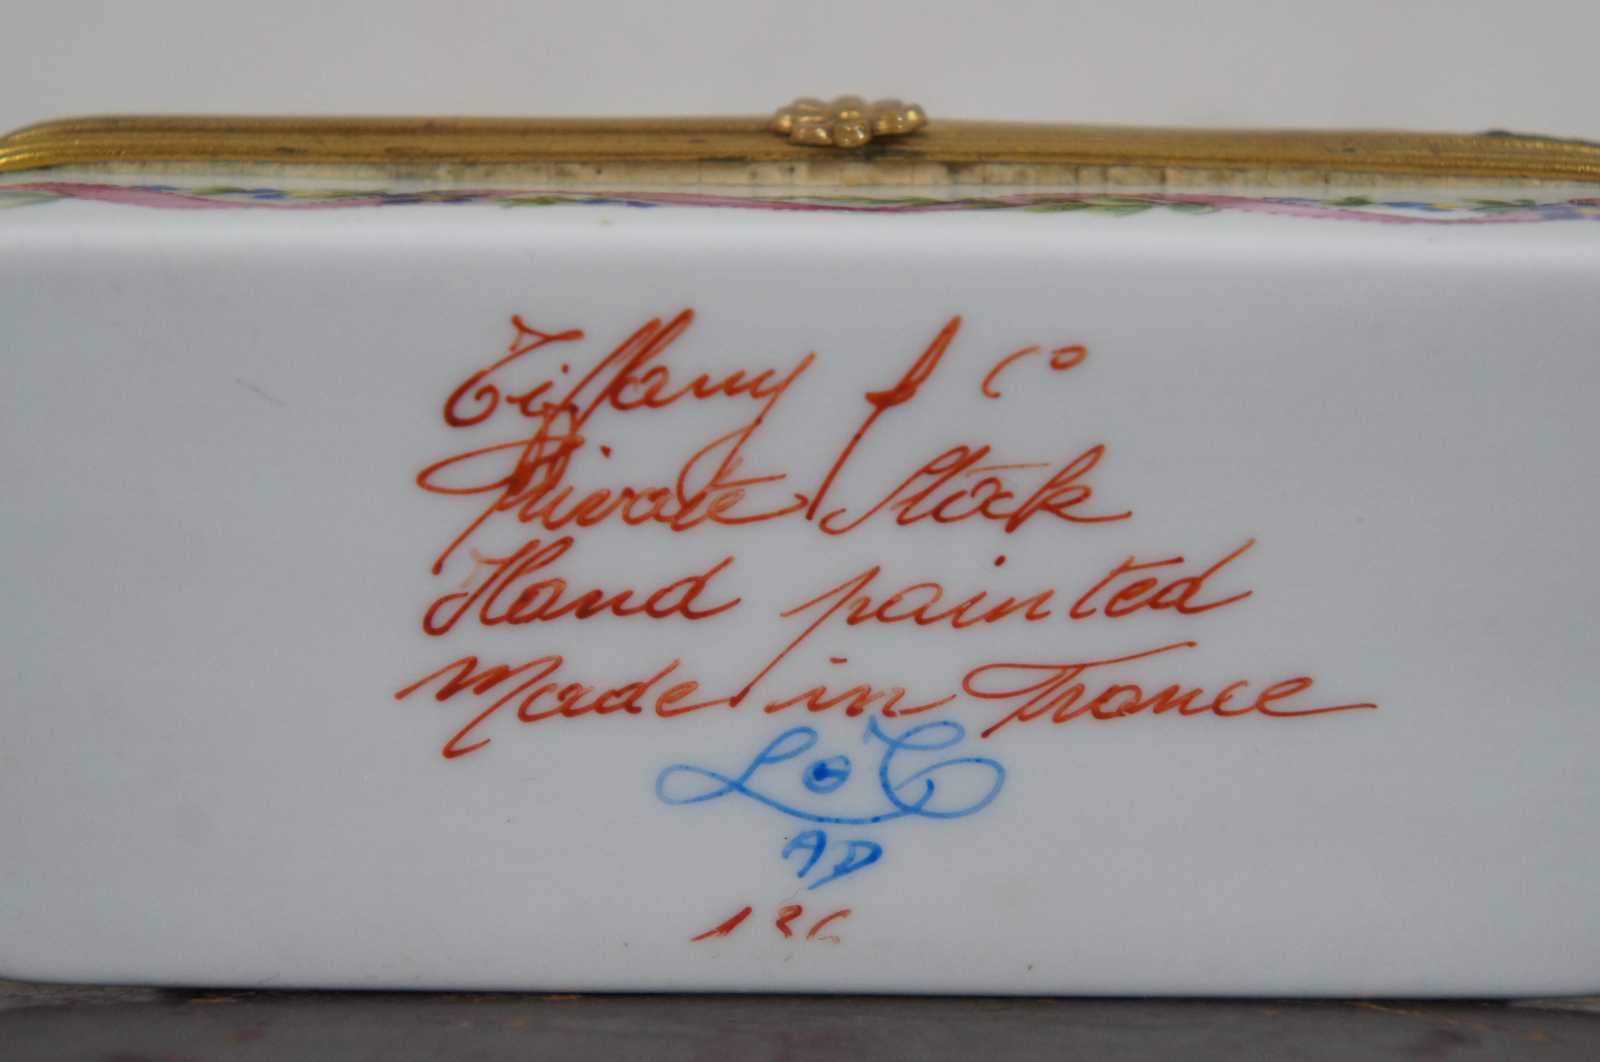 Tiffany & Co
Private Stock
Hand painted
Made in France
AD
136